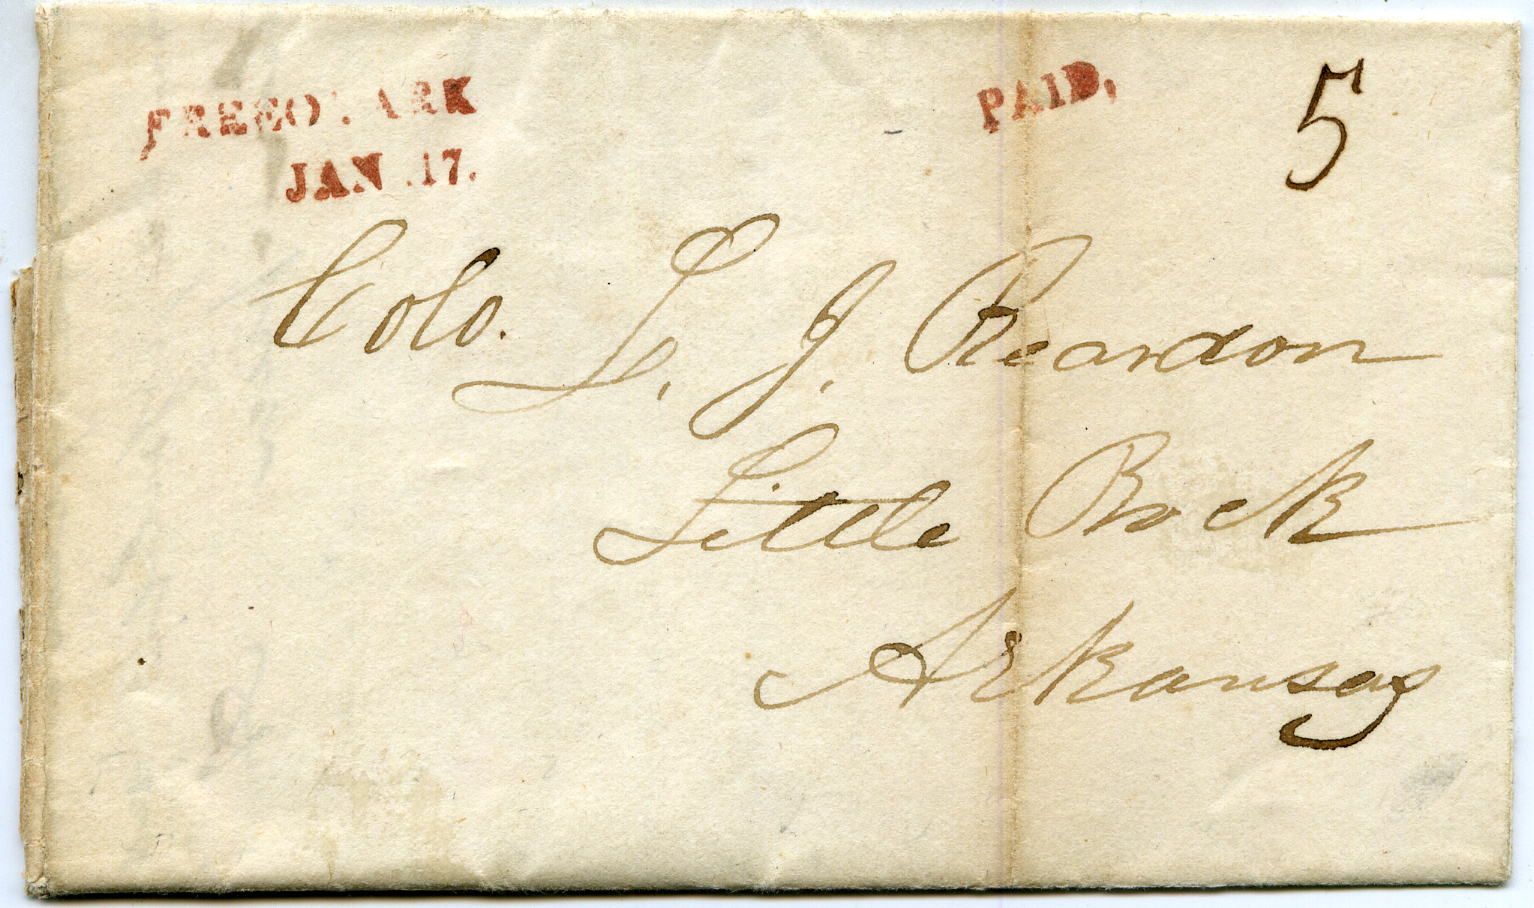 FREEO. ARK
JAN 17.
PAID,
5
Colo. L. J. Reardon
Little Rock
Arkansas